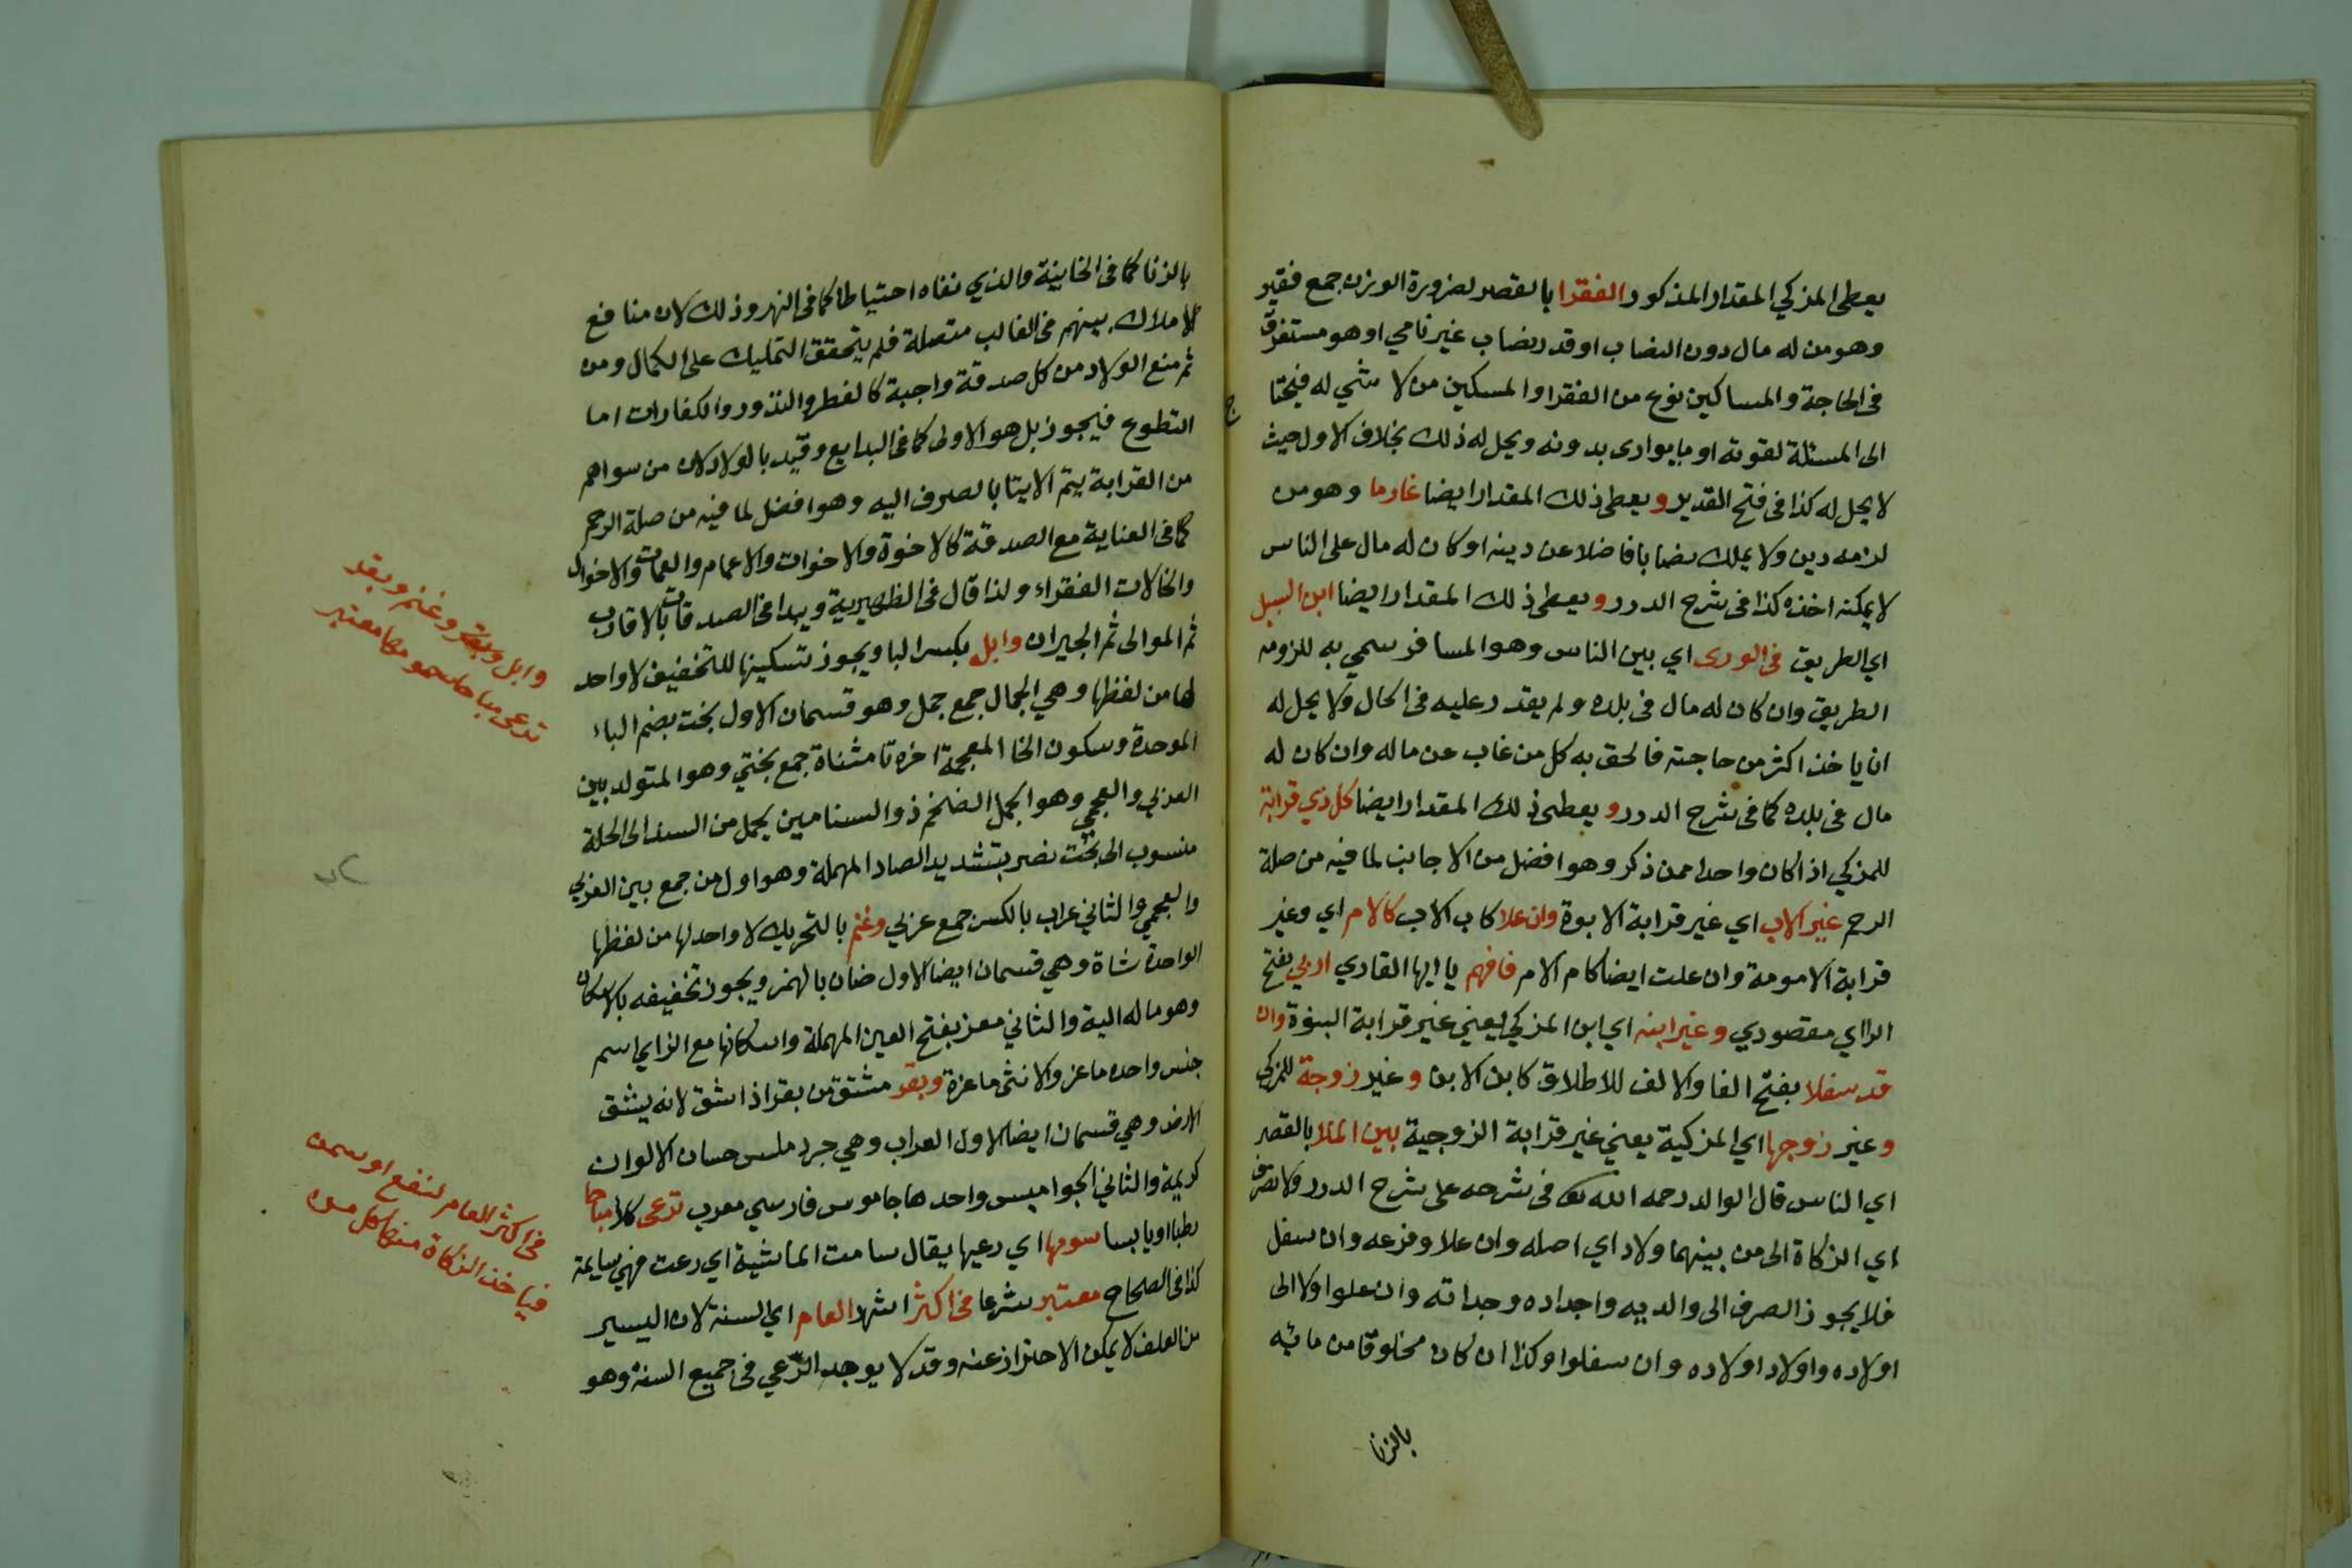 يعطى المزكي المقدار المذكور الفقرا بالقصر لضرورة الوزن جمع فقير
وهو من له مال دون النصاب او قدر نصاب غير نامي او هو مستغرق
فى الحاجة والمساكين نوع من الفقرا والمسكين من لا شي له فيحتا
ج
الى المسئلة لقوته او ما يوارى بدونه ويحل له ذلك بخلاف الاول حيث
لا يحل له كذا فى فتح القدير ويعطى ذلك المقدار ايضا غارما وهو من
لزمه دين ولا يملك نصابا فاضلا عن دينه او كان له مال على الناس
لا يمكنه اخذه كذا فى شرح الدرر ويعطى ذلك المقدار ايضا ابن السبيل
اي الطريق فى الورى اي بين الناس وهو المسافر سمي به للزومه
الطريق وان كان له مال فى بلده ولم يقدر عليه فى الحال ولا يحل له
ان ياخذ اكثر من حاجته فالحق به كل من غاب عن ماله وان كان له
مال فى بلده كما فى شرح الدرر ويعطى ذلك المقدار ايضا كل ذي قرابة
للمزكي اذا كان واحدا ممن ذكر وهو افضل من الاجانب لما فيه من صلة
الرحم غير الاب اي غير قرابة الابوة وان علا كاب الاب كالام اي وغير
قرابة الامومة وان علت ايضا كام الام فافهم يا ايها القاري اربي بفتح
الراي مقصودي وغير ابنه اي ابن المزكي يعني غير قرابة البنوة وان
قد سفلا بفتح الفا والالف للاطلاق كابن الابن وغير زوجة للمزكي
وغير زوجها اي المزكية يعني غير قرابة الزوجية بين الملا بالقصر
اي الناس قال الوالد رحمه الله تعالى فى شرحه على شرح الدرر ولا تصرف
اي الزكاة الى من بينهما ولاد اي اصله وان علا وفرعه وان سفل
فلا يجوز الصرف الى والديه واجداده وجداته وان علوا ولا الى
اولاده واولاد اولاده وان سفلوا وكذا ان كان مخلوقا من مائه
بالزنا
بالزنا كما فى الخانية والذي نفاه احتياطا كما فى النهر وذلك لان منافع
الاملاك بينهم فى الغالب متصلة فلم يتحقق التمليك على الكمال ومن
ثم منع الولاد من كل صدقة واجبة كالفطر والنذور والكفارات اما
التطوع فيجوز بل هو الاولى كما فى البدايع وقيد بالولاد لان من سواهم
من القرابة يتم الايتا بالصرف اليه وهو افضل لما فيه من صلة الرحم
كما فى العناية مع الصدقة كالاخوة والاخوات والاعمام والعمات والاخوال
والخالات الفقراء ولذا قال فى الظهيرية ويبدا فى الصدقات بالاقارب
ثم الموالى ثم الجيران وابل بكسر البا ويجوز تسكينها للتخفيف لا واحد
لها من لفظها وهي الجمال جمع جمل وهو قسمان الاول بخت بضم الباء
الموحدة وسكون الخا المعجمة اخره تا مثناة جمع بختي وهو المتولد بين
العربي والعجمي وهو الجمل الضخم ذو السنامين يحمل من السند الى الحلة
منسوب الى بخت نصر بتشديد الصاد المهملة وهو اول من جمع بين العربي
والعجمي والثاني عراب بالكسر جمع عربي وغنم بالتحريك لا واحد لها من لفظها
الواحدة شاة وهي قسمان ايضا الاول ضان بالهمز ويجوز تخفيفه بالاسكان
وهو ما له الية والثاني معز بفتح العين المهملة واسكانها مع الزاي اسم
جنس واحده ماعز والانثى ماعزة وبقر مشتق من بقر اذا شق لانه يشق
الارض وهي قسمان ايضا الاول العراب وهي جرد ملس حسان الالوان
كريمة والثاني الجواميس واحدها جاموس فارسي معرب ترعى كلا مباحا
رطبا او يابسا سومها اي رعيها يقال سامت الماشية اي رعت فهي سايمة
كذا فى الصحاح معتبر شرعا فى اكثر اشهر العام اي السنة لان اليسير
من العلف لا يمكن الاحتراز عنه وقد لا يوجد الرعي فى جميع السنة وهو
وابل وبقر وغنم وبقر
ترعى مباحا سومها معتبر
فى اكثر العام لنفع او سمن
فياخذ الزكاة منها كل من